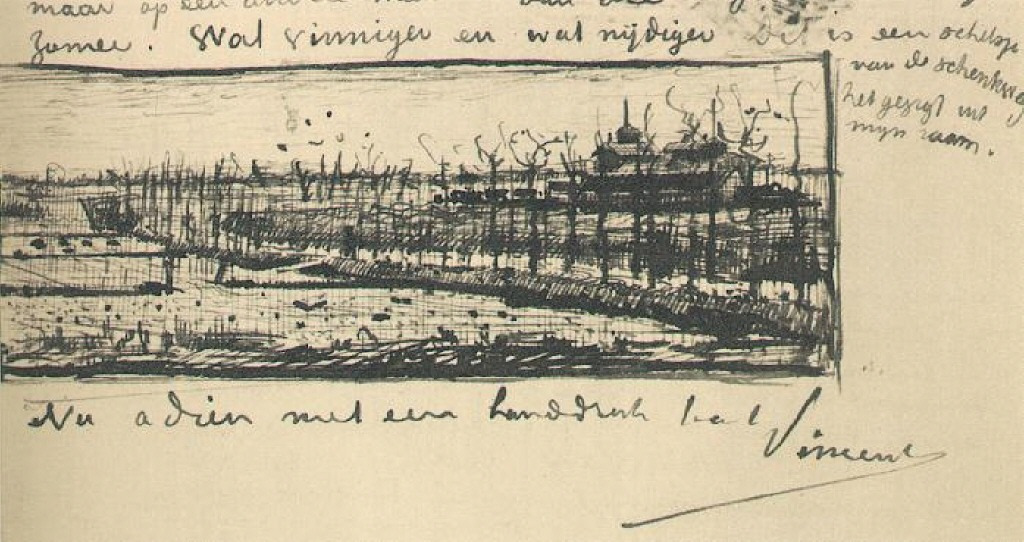 maar op een andere
zomer. Wat vinniger en wat nijdiger Dit is een schetsje
van de Schenkweg
het gezigt uit
mijn raam.
Nu adieu met een handdruk t.à.t.
Vincent